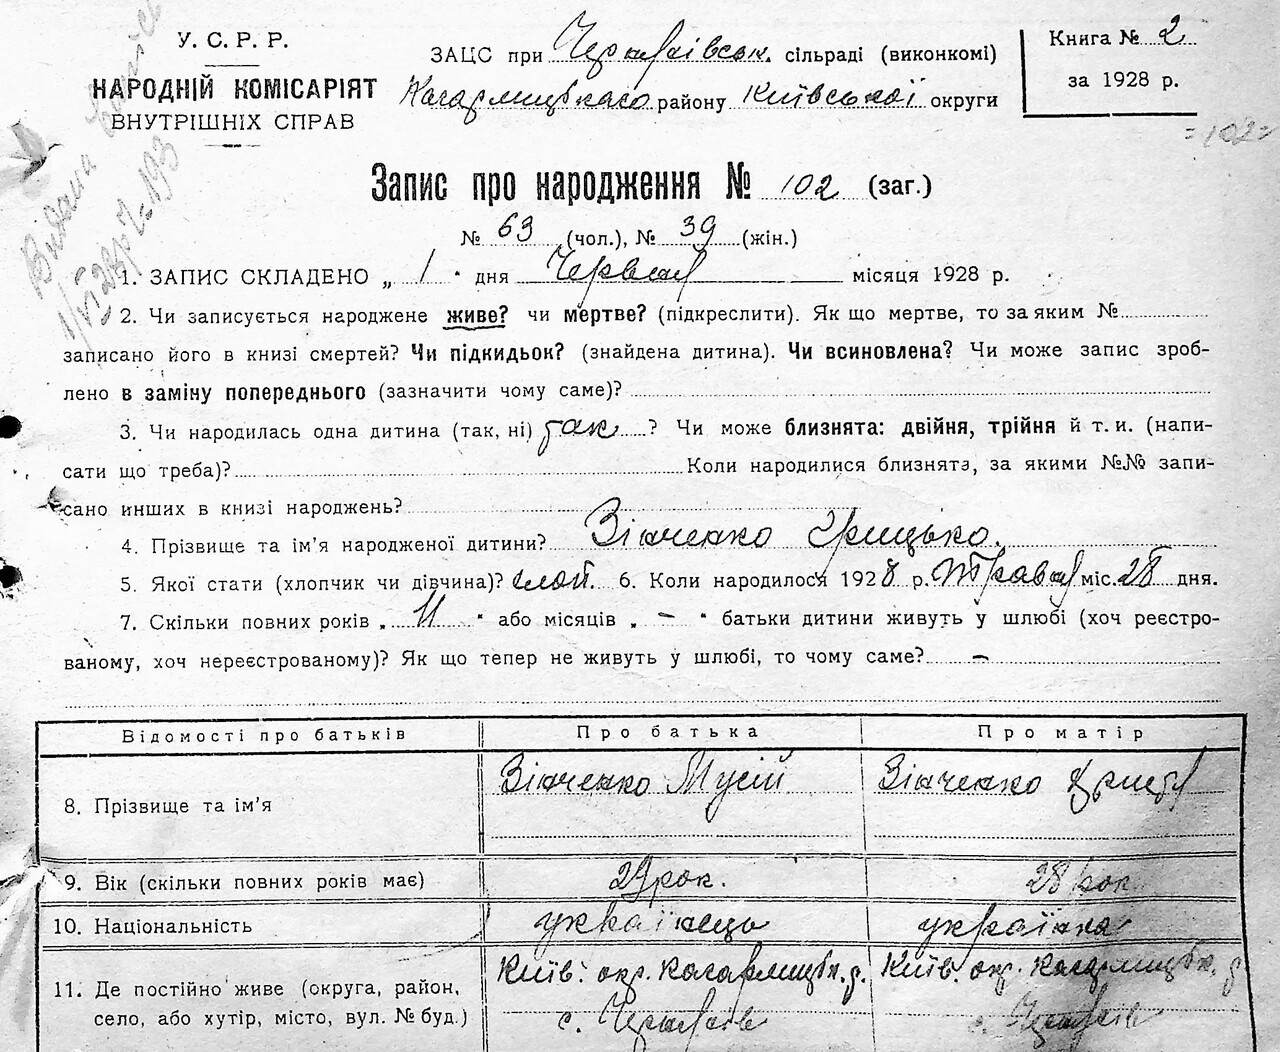 У. С. Р. Р.
НАРОДНІЙ КОМІСАРІЯТ
ВНУТРІШНІХ СПРАВ
ЗАЦС при сільраді (виконкомі)
Кагарлицького району Київської округи
Книга № 2
за 1928 р.
=102=
Видана
Запис про народження № 102 (заг.)
№ 63 (чол.), № 39 (жін.)
1. ЗАПИС СКЛАДЕНО „ 1 " дня Червня місяця 1928 р.
2. Чи записується народжене живе? чи мертве? (підкреслити). Як що мертве, то за яким №
записано його в книзі смертей? Чи підкидьок? (знайдена дитина). Чи всиновлена? Чи може запис зроб-
лено в заміну попереднього (зазначити чому саме)?
3. Чи народилась одна дитина (так, ні) так ? Чи може близнята: двійня, трійня й т. и. (напи-
сати що треба)? Коли народилися близнята, за якими №№ запи-
сано инших в книзі народжень?
4. Прізвище та ім'я народженої дитини? Зінченко Грицько.
5. Якої стати (хлопчик чи дівчина)? 6. Коли народилося 1928 р. Травня міс. 28 дня.
7. Скільки повних років „ 11 " або місяців „ – " батьки дитини живуть у шлюбі (хоч реєстро-
ваному, хоч нереєстрованому)? Як що тепер не живуть у шлюбі, то чому саме? –
Відомості про батьків Про батька Про матір
8. Прізвище та ім'я Зінченко Мусій Зінченко
9. Вік (скільки повних років має) 29 рок. 28 рок.
10. Національність українець українка
11. Де постійно живе (округа, район, Київ. окр. Кагарлицьк. р. Київ. окр. Кагарлицьк. р.
село, або хутір, місто, вул. № буд.) с. с.